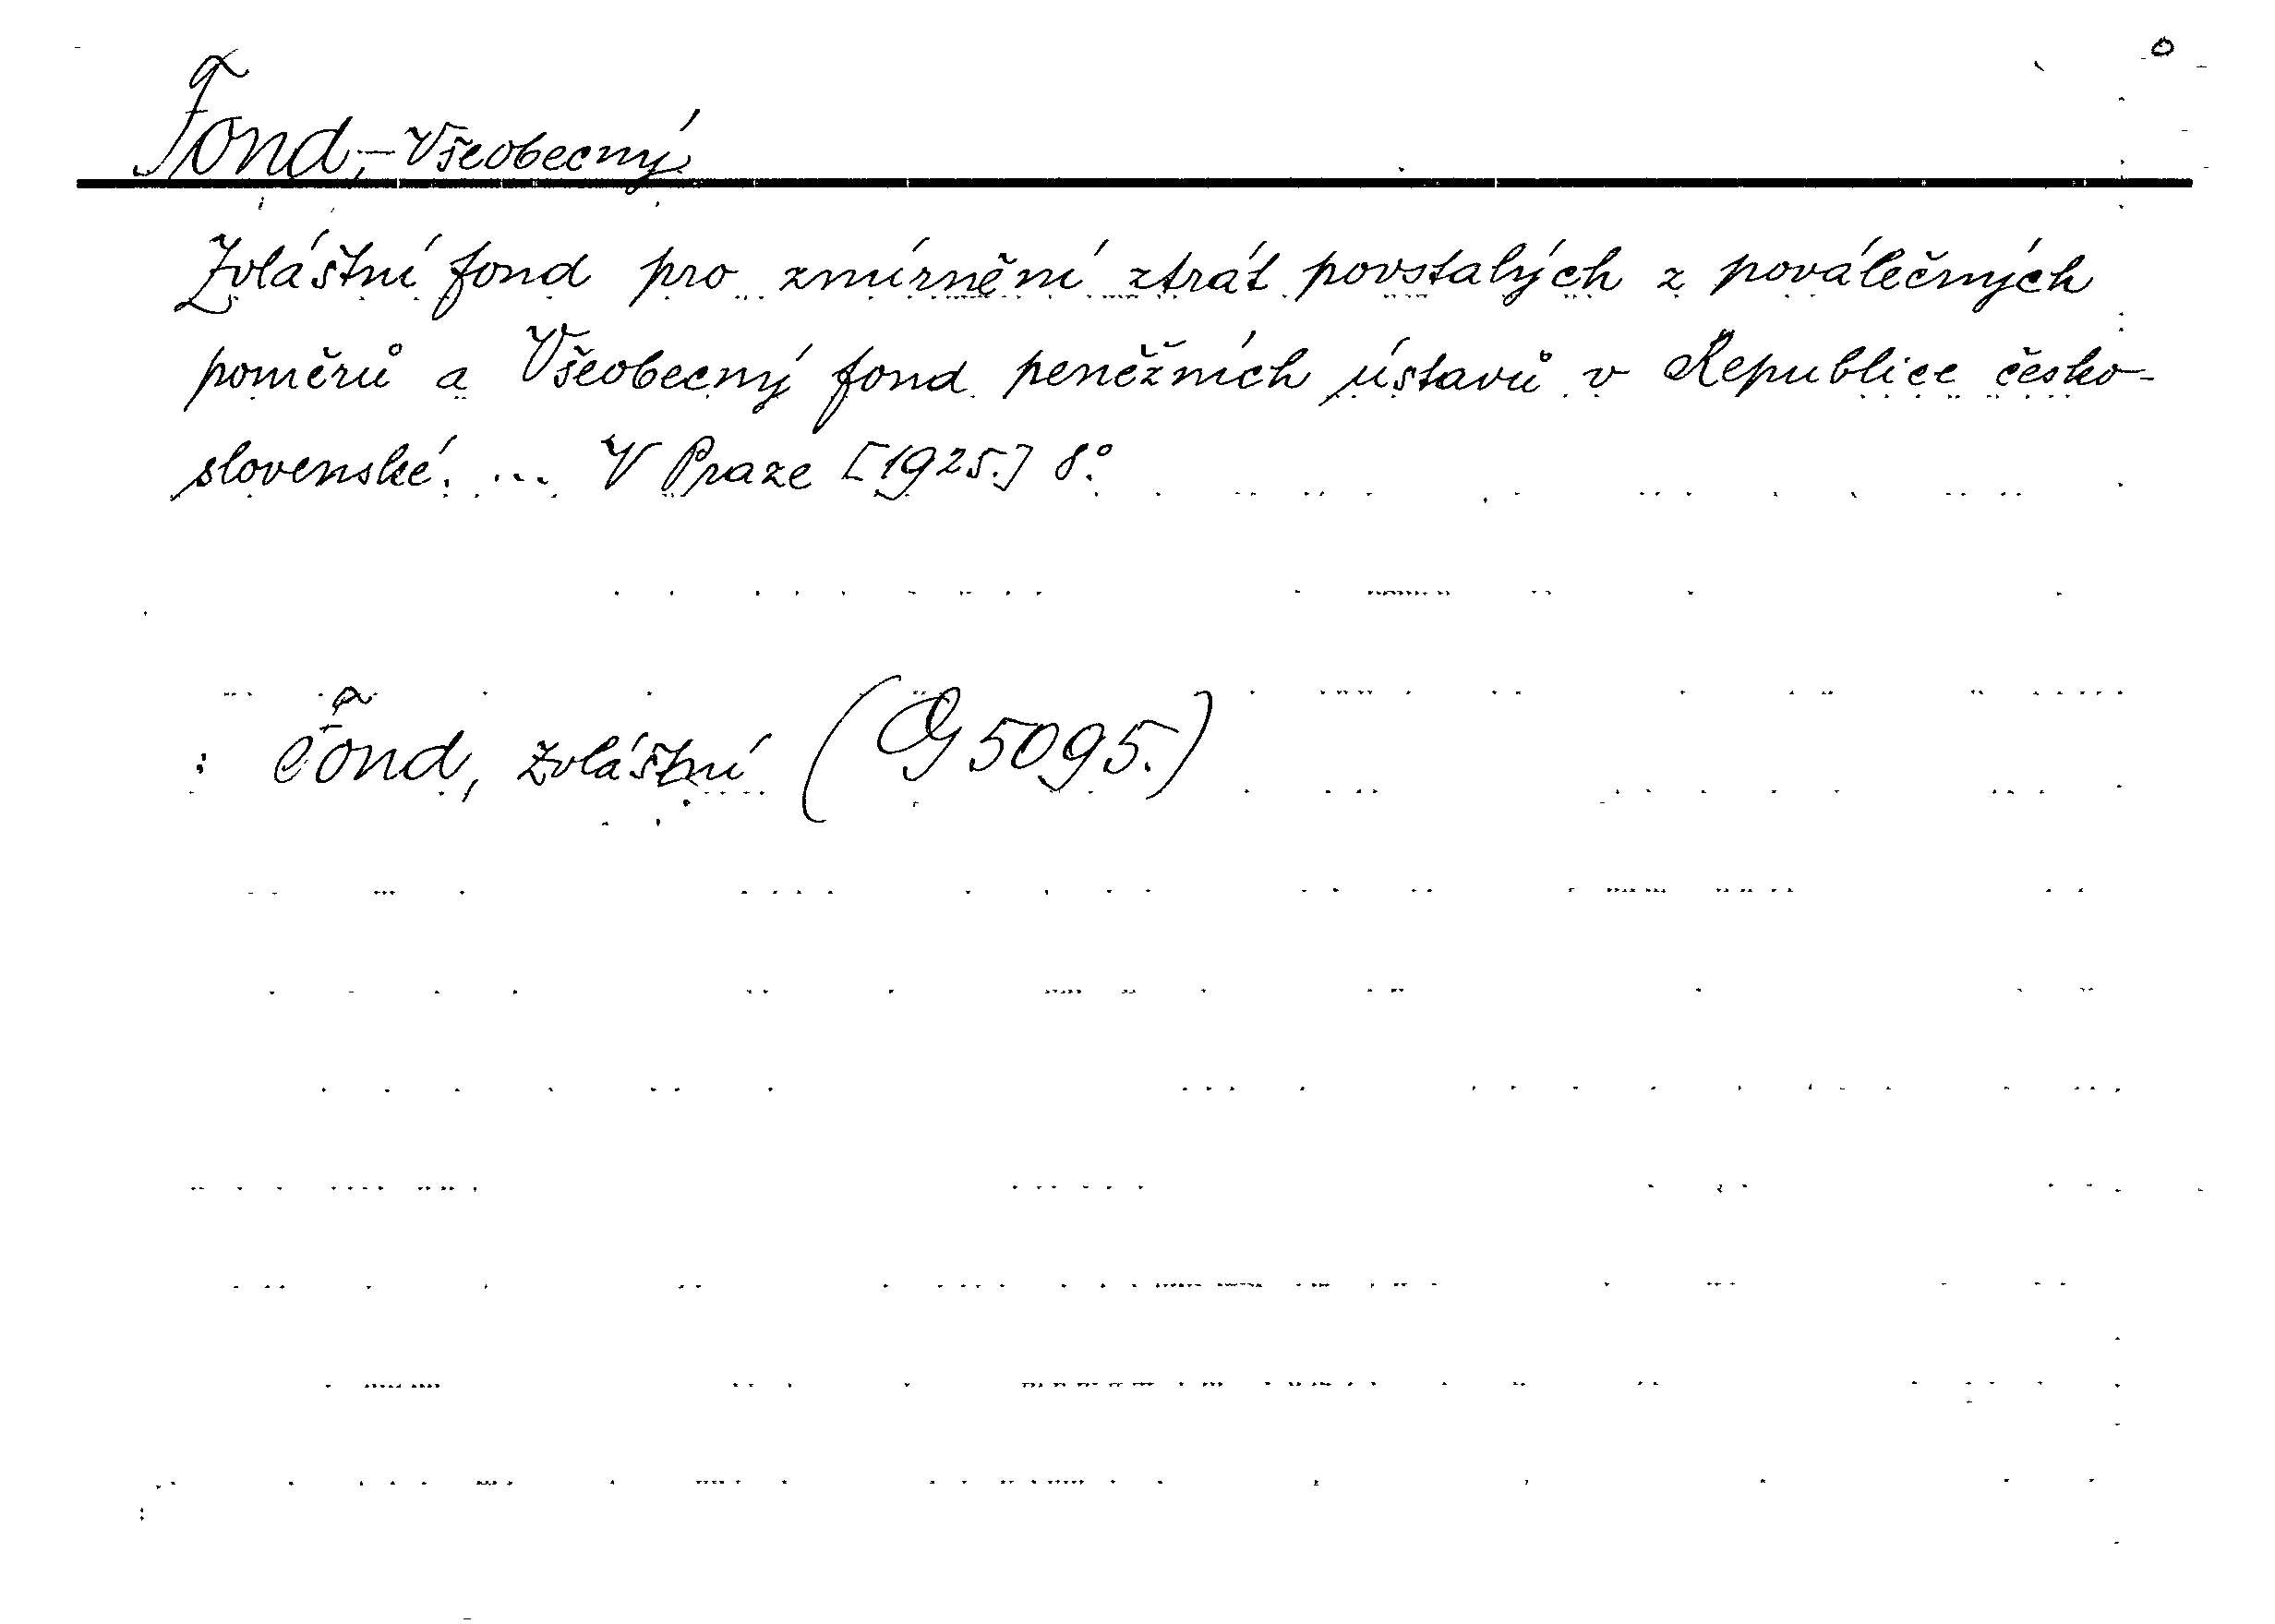 Fond,- Všeobecný.
Zvláštní fond pro zmírnění ztrát povstalých z poválečných
poměrů a Všeobecný fond peněžních ústavů v Republice česko-
slovenské. ... V Praze [1925.] 8°.
: Fond, zvláštní (G 5095.)